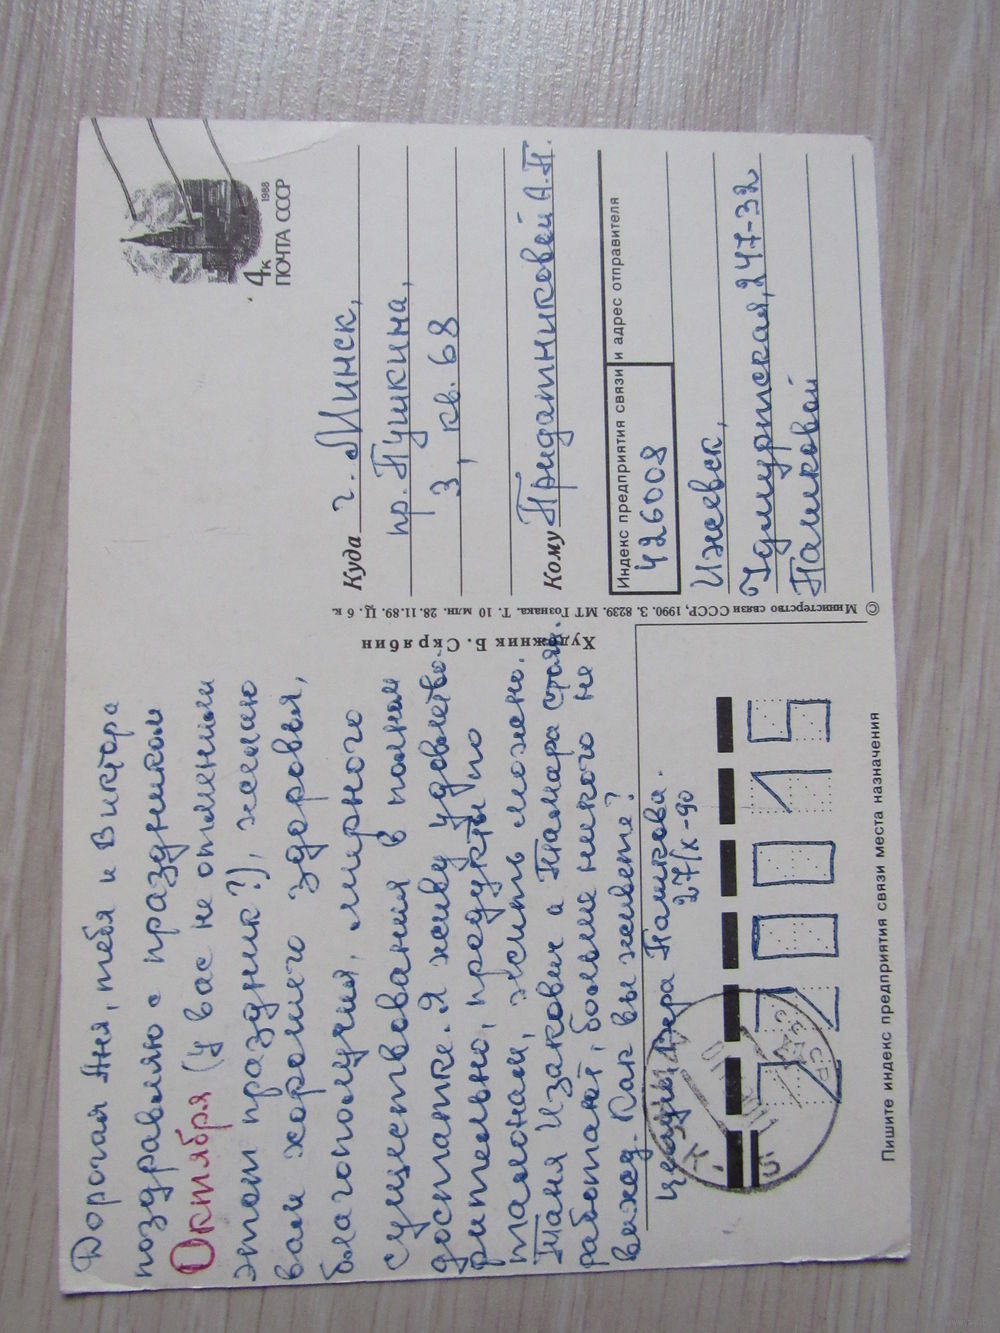 Дорогая Аня, тебя и Виктора
поздравляю с праздником
Октября (у вас не отменили
этот праздник?), желаю
вам хорошего здоровья,
благополучия, мирного
существования в полном
достатке. Я живу удовлетво-
рительно, продукты по
талонам, жить можно.
Таня Изакович а Тамара
работают, больше никого не
вижу. Как вы живете?
Целую Вера Пашкова.
27/X-90
4к
1988
ПОЧТА СССР
Куда г. Минск,
пр. Пушкина,
3, кв. 68
Кому Придатниковой А.П.
Индекс предприятия связи и адрес отправителя
426008
Ижевск,
Удмуртская, 247-32
Пашковой
© Министерство связи СССР, 1990. З. 8239. МТ Гознака. Т. 10 млн. 28.11.89. Ц. 6 к.
Художник Б. Скрябин
220015
Пишите индекс предприятия связи места назначения